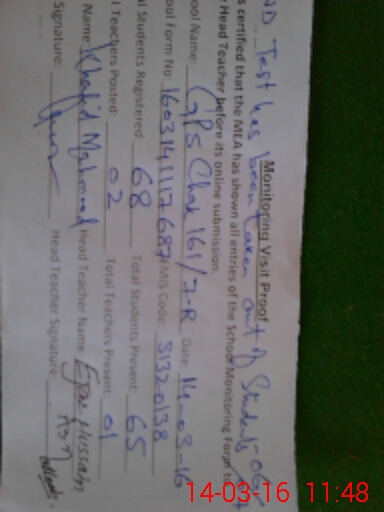 Monitoring Visit Proof
ND Test has been taken out of Students
s certified that the MEA has shown all entries of the School Monitoring Form to
Head Teacher before its online submission.
ool Name: GPS Chak 161/7-R Date: 14-03-16
ool Form No: EMIS Code: 31320138
l Students Registered: 68 Total Students Present: 65
l Teachers Posted: 02 Total Teachers Present: 01
Name: Khalid Mahmood Head Teacher Name: Ejaz Hussain
Signature: Head Teacher Signature
14-03-16 11:48